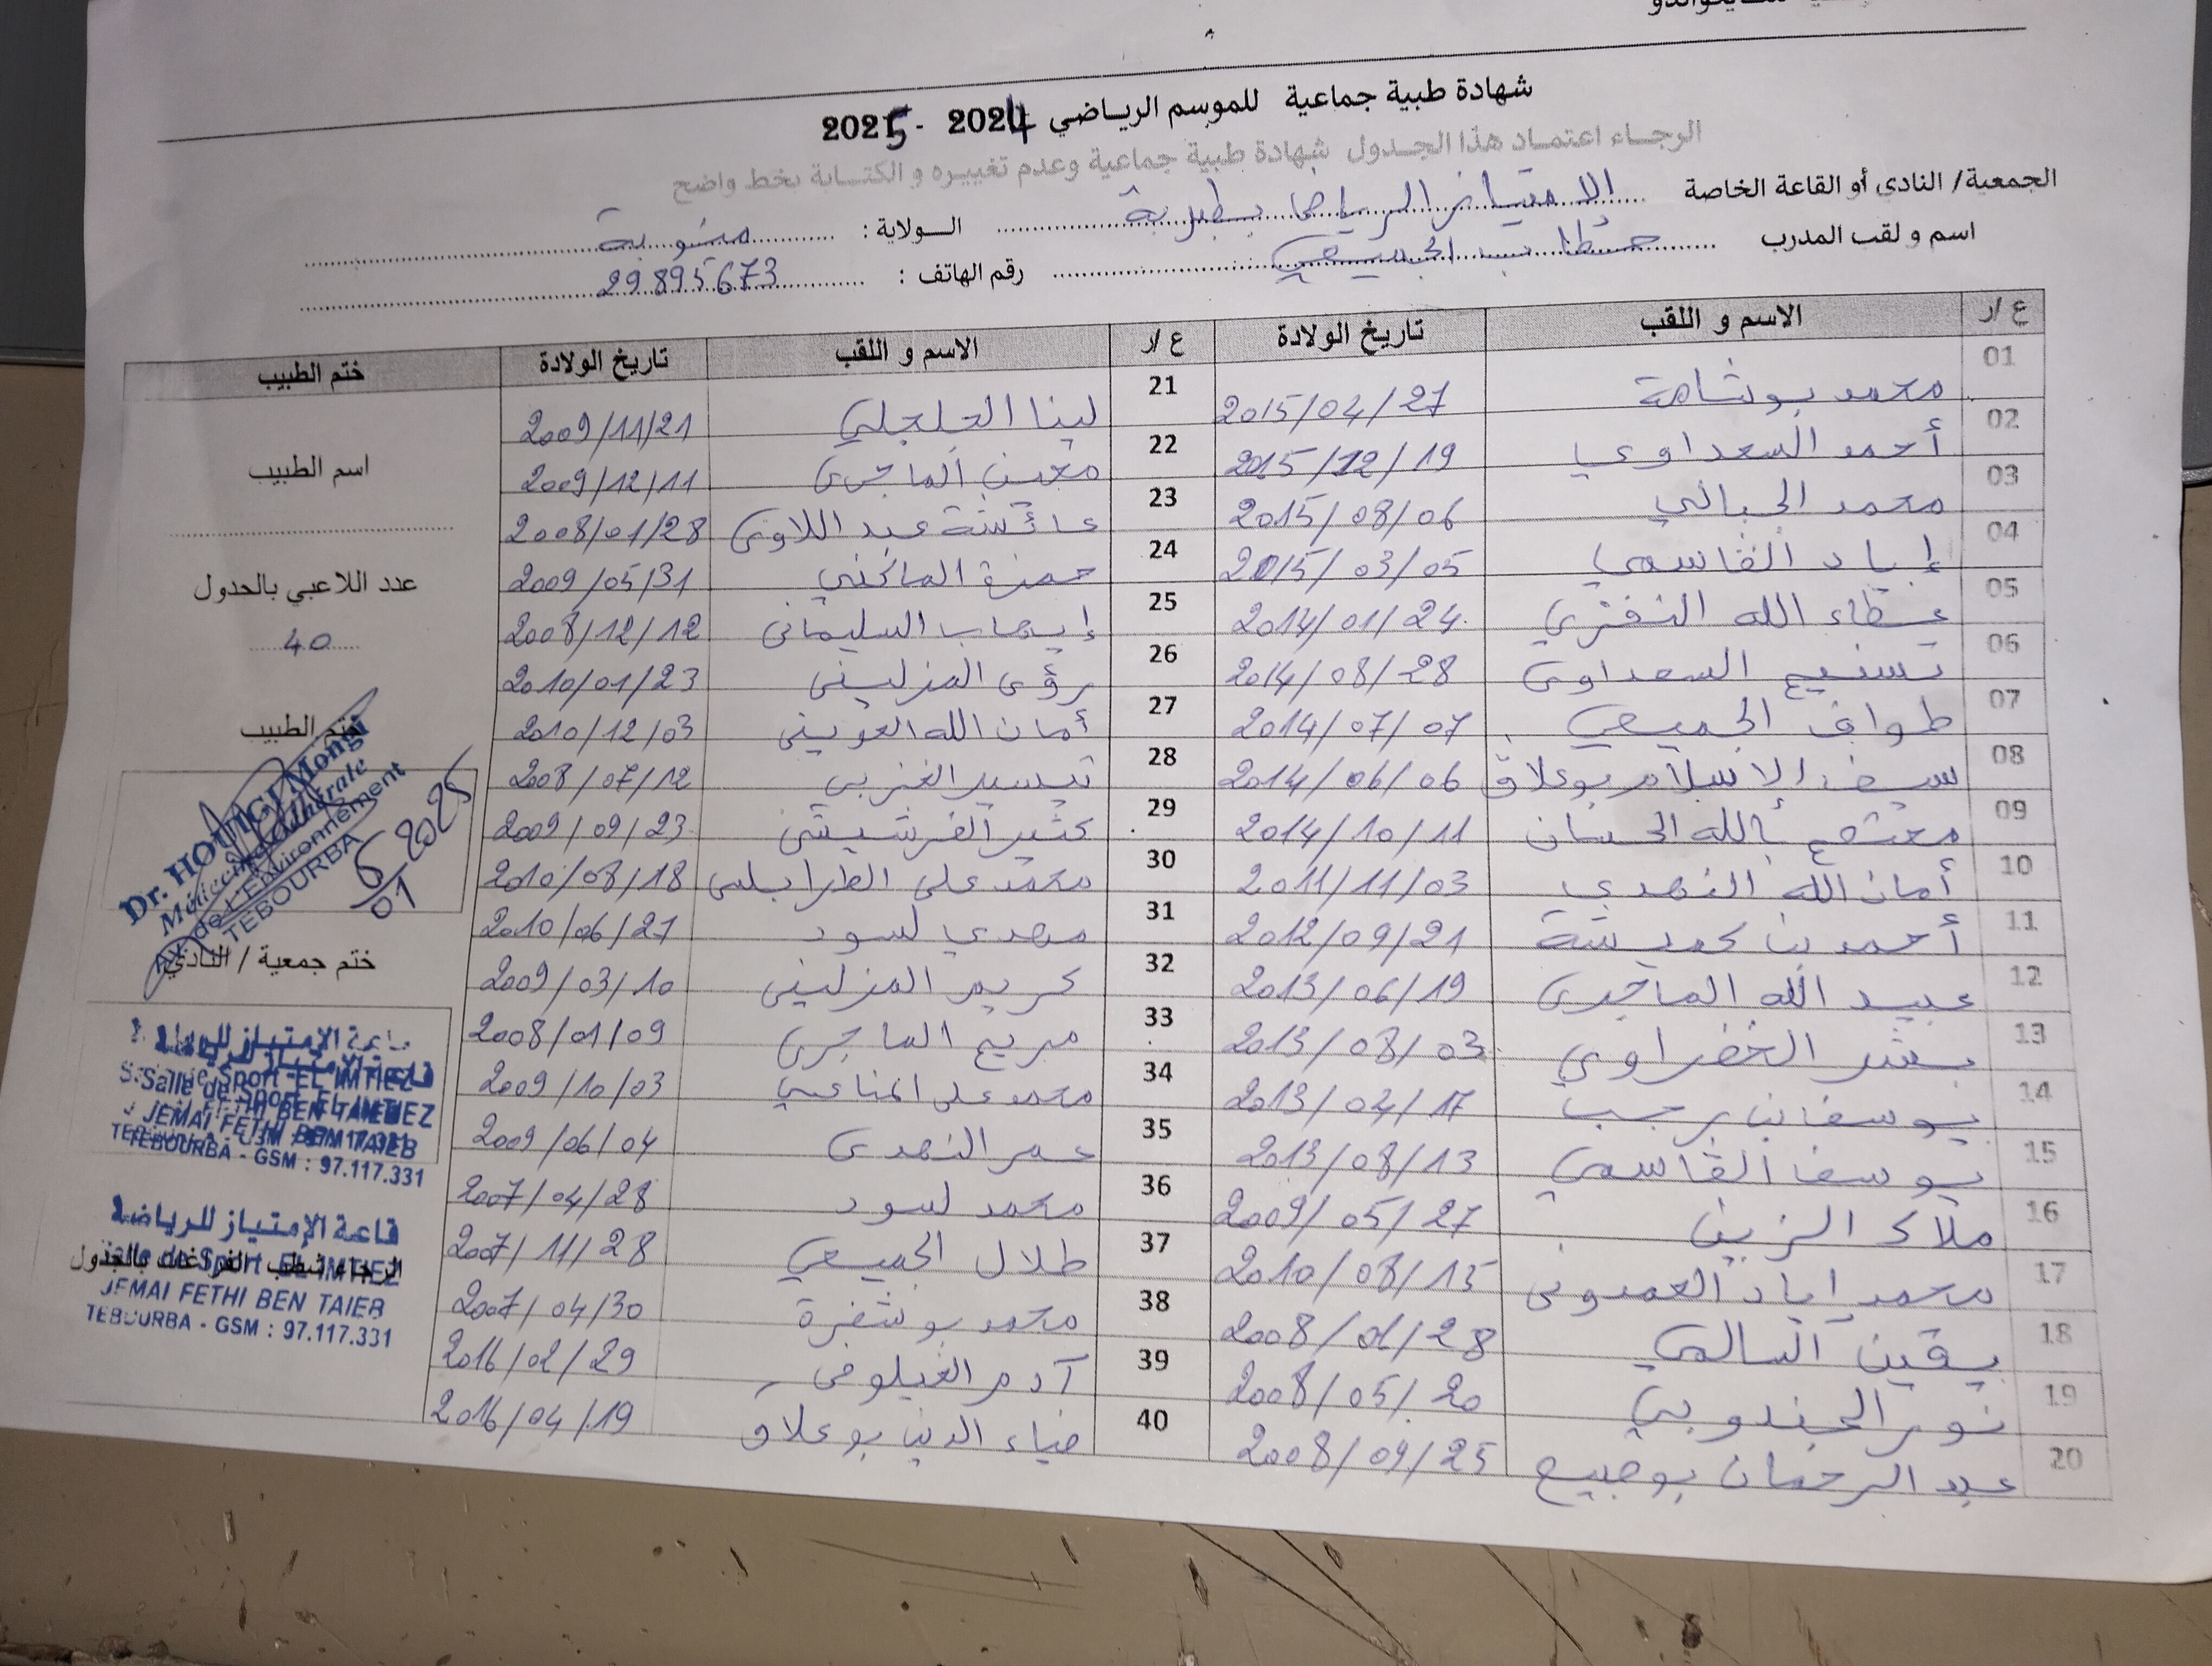 للتايكواندو
شهادة طبية جماعية للموسم الرياضي 2024 - 2025
الرجاء اعتماد هذا الجدول شهادة طبية جماعية وعدم تغييره و الكتابة بخط واضح
الجمعية/ النادي أو القاعة الخاصة الامتياز الرياضي بطبربة الولاية : منوبة
اسم و لقب المدرب خطاب الجميعي رقم الهاتف : 29895673
ع /ر الاسم و اللقب تاريخ الولادة ع /ر الاسم و اللقب تاريخ الولادة ختم الطبيب
01 محمد بوشامة 2015/04/27 21 لينا الجلجلي 2009/11/21
02 أحمد السعداوي 2015/12/19 22 معين الماجري 2009/12/11
03 محمد الجبالي 2015/08/06 23 عائشة عبد اللاوي 2008/01/28
04 إياد القاسمي 2015/03/05 24 حمزة الماكني 2009/05/31
05 عطاء الله النفزي 2014/01/24 25 إيهاب السليماني 2008/12/12
06 تسنيم السعداوي 2014/08/28 26 رؤى المزليني 2010/01/23
07 طواف الجميعي 2014/07/07 27 أمان الله العويني 2010/12/03
08 سيف الاسلام بوعلاق 2014/06/06 28 تيسير الغزبي 2008/07/12
09 معتصم بالله الحسان 2014/10/11 29 كثير الفرشيشي 2009/09/23
10 أمان الله النهدي 2011/11/03 30 محمد علي الطرابلسي 2010/08/18
11 أحمد بن كميشة 2012/09/21 31 مهدي لسود 2010/06/27
12 عبيد الله الماجري 2013/06/19 32 كريم المزليني 2009/03/10
13 بشر الخضراوي 2013/08/03 33 مريم الماجري 2008/01/09
14 يوسف بن رجب 2013/04/17 34 محمد علي المناعي 2009/10/03
15 يوسف القاسمي 2013/08/13 35 عمر النهدي 2009/06/04
16 ملاك الزين 2009/05/27 36 محمد لسود 2007/04/28
17 محمد إياد العمدوني 2010/08/15 37 طلال الجميعي 2007/11/28
18 يقين السالمي 2008/01/28 38 محمد بوشفرة 2007/04/30
19 نور الجندوبي 2008/05/20 39 آدم الغيلوفي 2016/02/29
20 عبد الرحمان بوصبيع 2008/09/25 40 ضياء الدين بوعلاق 2016/04/19
اسم الطبيب
عدد اللاعبي بالجدول
40
ختم الطبيب
Dr. HOUIGI Mongi
Médecine Générale
AV. de L'Environnement
TEBOURBA
6/01 2025
ختم جمعية / النادي
قاعة الإمتياز للرياضة
Salle de Sport EL IMTIEZ
JEMAI FETHI BEN TAIEB
TEBOURBA - GSM : 97.117.331
قاعة الإمتياز للرياضة
Salle de Sport EL IMTIEZ
الرجاء شطب الفراغات بالجدول
JEMAI FETHI BEN TAIEB
TEBOURBA - GSM : 97.117.331